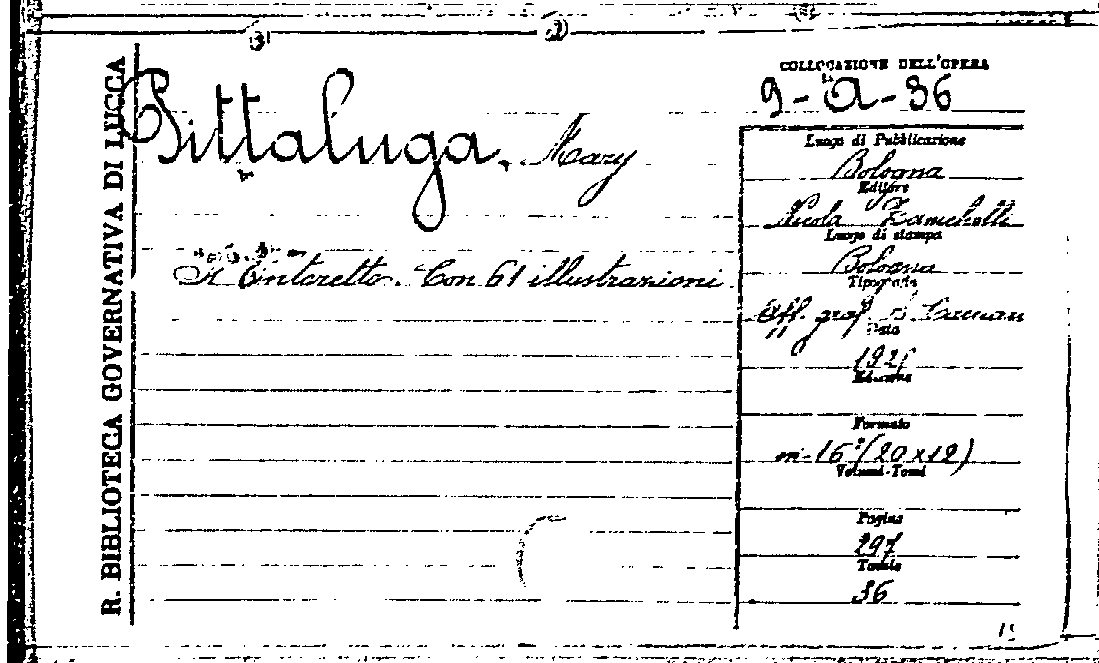 R. BIBLIOTECA GOVERNATIVA DI LUCCA
Pittaluga, Mary
Il Tintoretto. Con 61 illustrazioni
COLLOCAZIONE DELL'OPERA
9-A-36
Luogo di Pubblicazione
Bologna
Editore
Nicola Zanichelli
Luogo di stampa
Bologna
Tipografia
Off. graf.
Data
Edizione
Formato
in-16° (20x12)
Volumi-Tomi
Pagine
297
Tavole
36